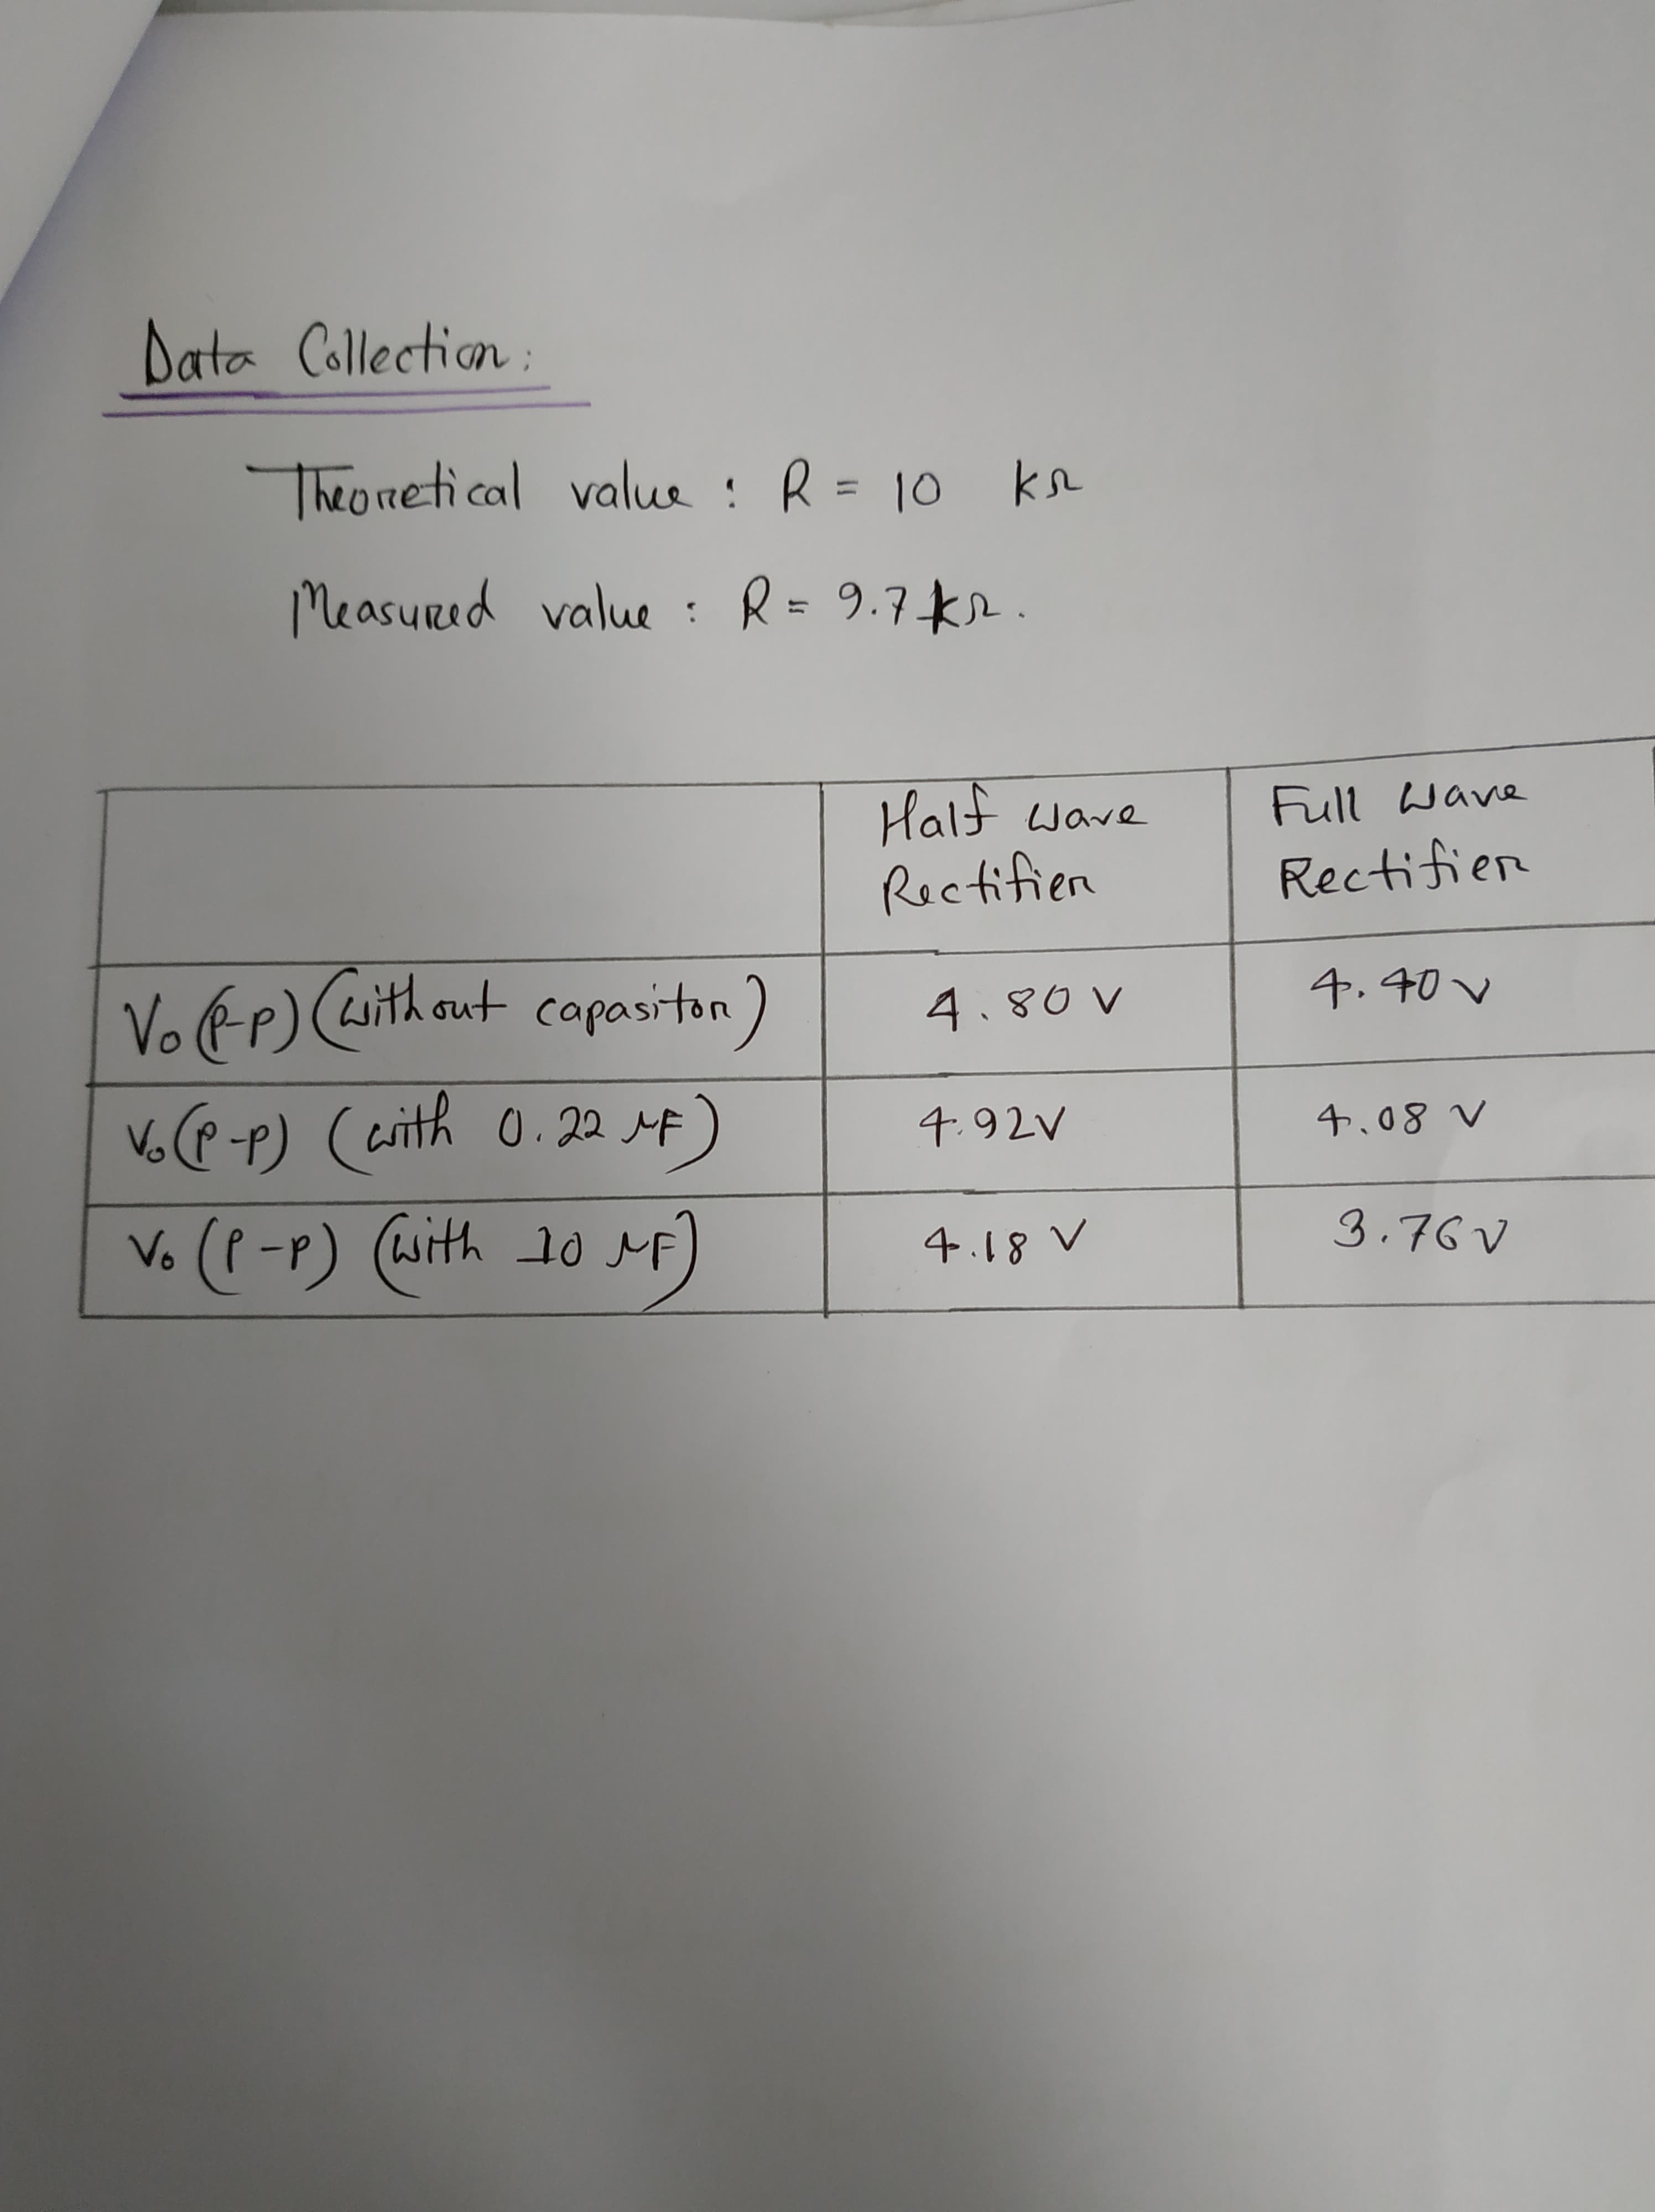 Data Collection:
Theoretical value : R = 10 kΩ
Measured value : R = 9.7 kΩ.
Half wave Rectifier
Full wave Rectifier
Vo (p-p) (without capasitor) 4.80 V 4.40 V
Vo (p-p) (with 0.22 μF) 4.92V 4.08 V
Vo (p-p) (with 10 μF) 4.18 V 3.76 V